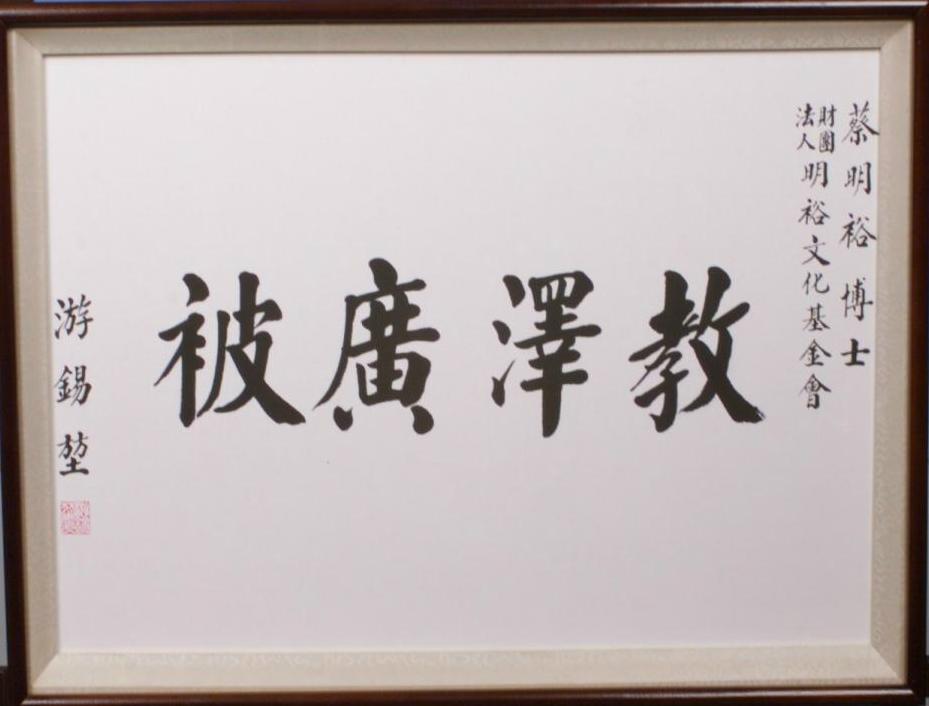 蔡明裕博士
財團法人明裕文化基金會
教澤廣被
游錫堃